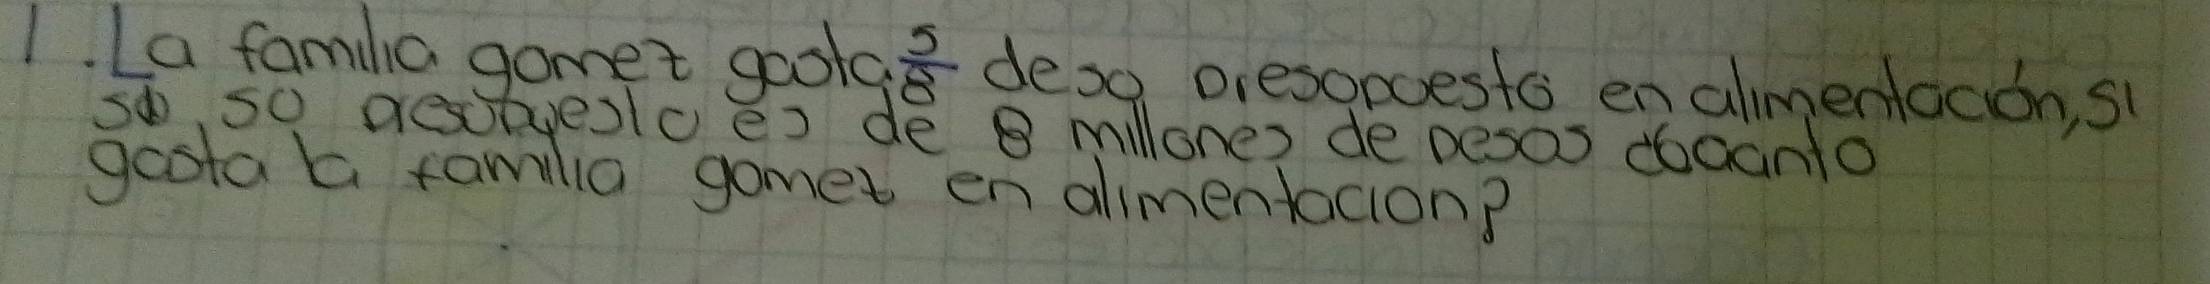 1. La familia gomez gasta 5/8 de so presopoesto en alimentación, si
so es de 8 millones de pesos coanto
gasta la familia gomez en alimentacion?